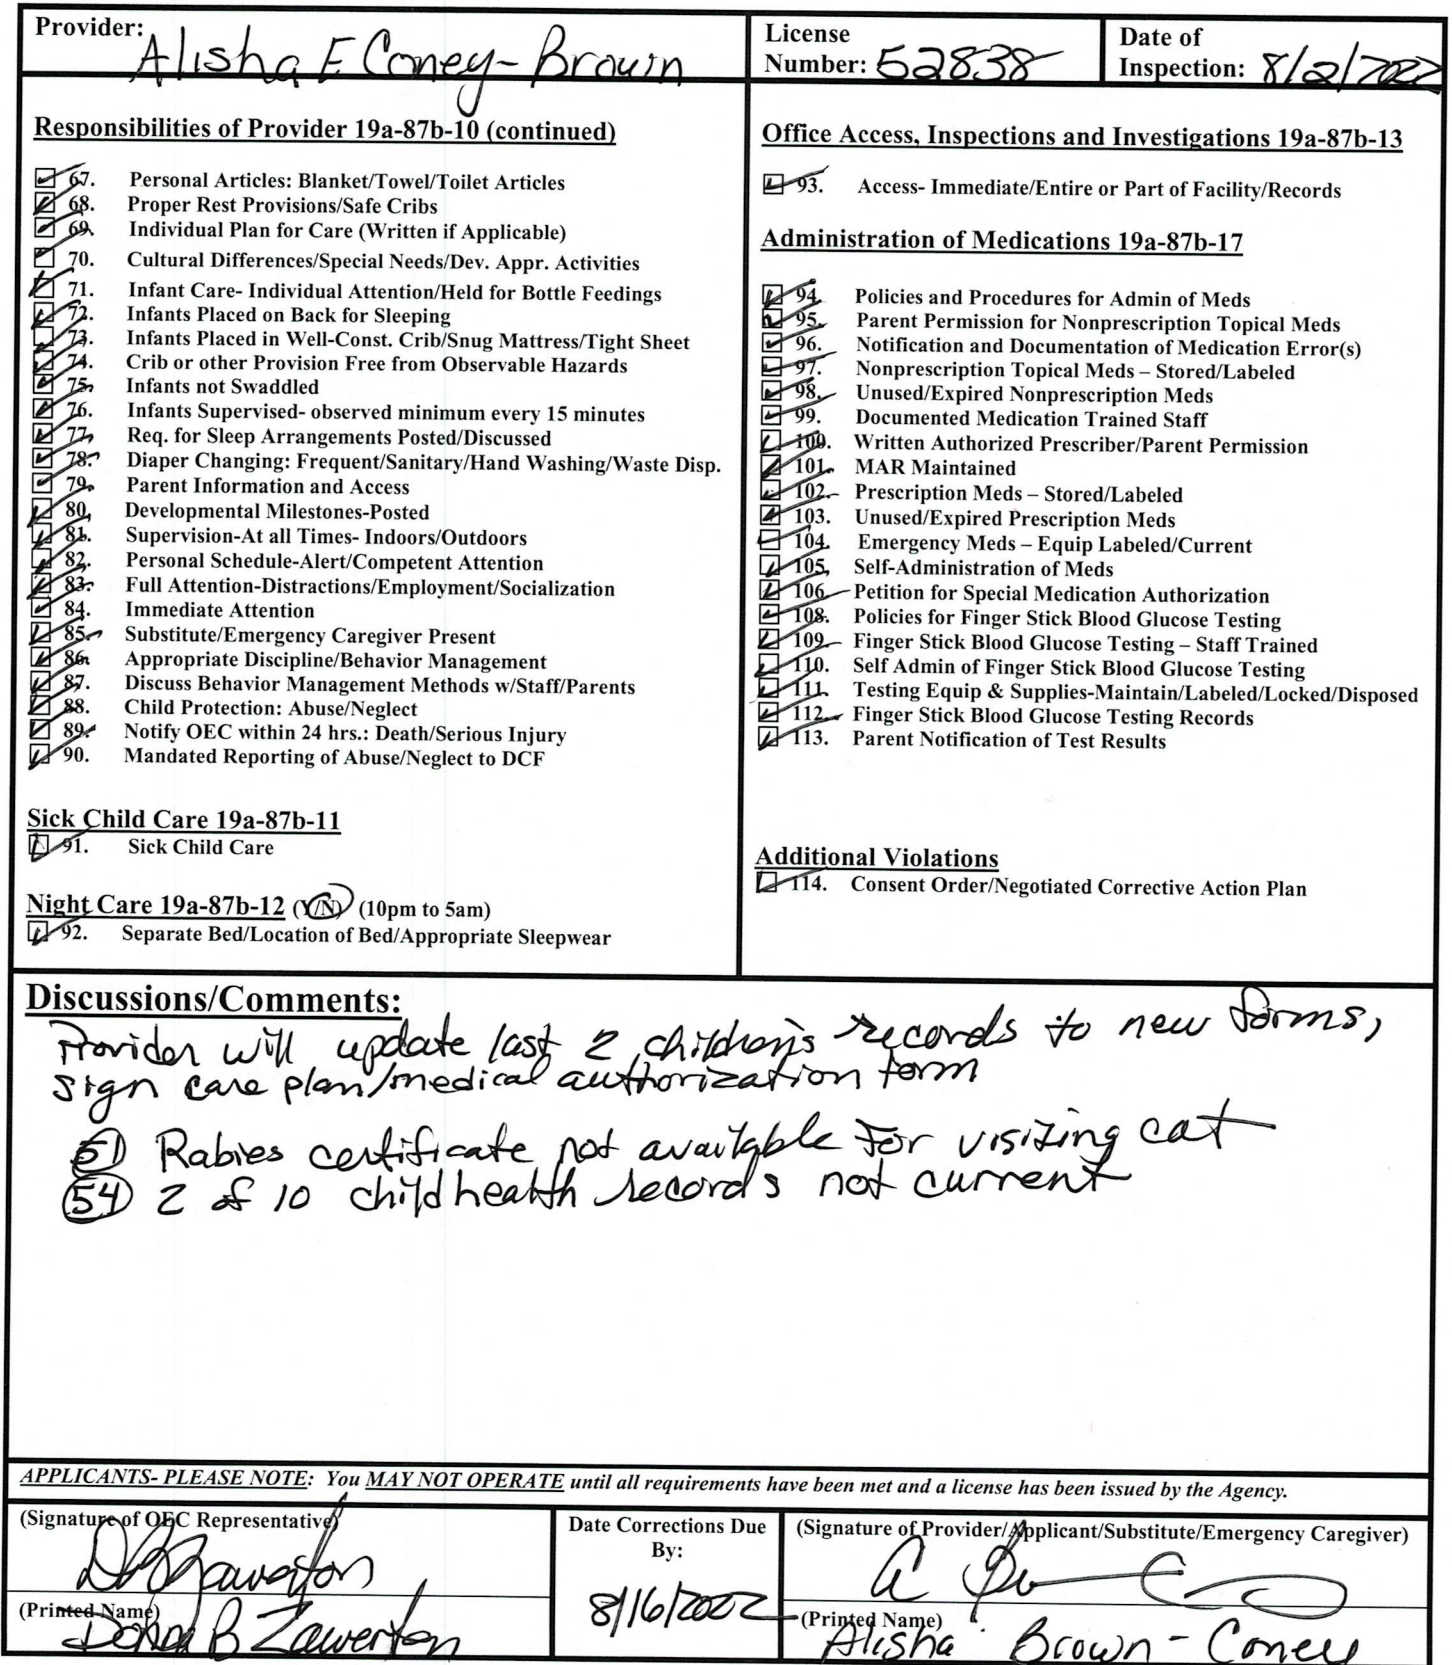 Provider: Alisha E Coney-Brown
License Number: 52838
Date of Inspection: 8/2/2022
Responsibilities of Provider 19a-87b-10 (continued)
67. Personal Articles: Blanket/Towel/Toilet Articles
68. Proper Rest Provisions/Safe Cribs
69. Individual Plan for Care (Written if Applicable)
70. Cultural Differences/Special Needs/Dev. Appr. Activities
71. Infant Care- Individual Attention/Held for Bottle Feedings
72. Infants Placed on Back for Sleeping
73. Infants Placed in Well-Const. Crib/Snug Mattress/Tight Sheet
74. Crib or other Provision Free from Observable Hazards
75. Infants not Swaddled
76. Infants Supervised- observed minimum every 15 minutes
77. Req. for Sleep Arrangements Posted/Discussed
78. Diaper Changing: Frequent/Sanitary/Hand Washing/Waste Disp.
79. Parent Information and Access
80. Developmental Milestones-Posted
81. Supervision-At all Times- Indoors/Outdoors
82. Personal Schedule-Alert/Competent Attention
83. Full Attention-Distractions/Employment/Socialization
84. Immediate Attention
85. Substitute/Emergency Caregiver Present
86. Appropriate Discipline/Behavior Management
87. Discuss Behavior Management Methods w/Staff/Parents
88. Child Protection: Abuse/Neglect
89. Notify OEC within 24 hrs.: Death/Serious Injury
90. Mandated Reporting of Abuse/Neglect to DCF
Sick Child Care 19a-87b-11
91. Sick Child Care
Night Care 19a-87b-12 (Y/N) (10pm to 5am)
92. Separate Bed/Location of Bed/Appropriate Sleepwear
Office Access, Inspections and Investigations 19a-87b-13
93. Access- Immediate/Entire or Part of Facility/Records
Administration of Medications 19a-87b-17
94. Policies and Procedures for Admin of Meds
95. Parent Permission for Nonprescription Topical Meds
96. Notification and Documentation of Medication Error(s)
97. Nonprescription Topical Meds – Stored/Labeled
98. Unused/Expired Nonprescription Meds
99. Documented Medication Trained Staff
100. Written Authorized Prescriber/Parent Permission
101. MAR Maintained
102. Prescription Meds – Stored/Labeled
103. Unused/Expired Prescription Meds
104. Emergency Meds – Equip Labeled/Current
105. Self-Administration of Meds
106. Petition for Special Medication Authorization
108. Policies for Finger Stick Blood Glucose Testing
109. Finger Stick Blood Glucose Testing – Staff Trained
110. Self Admin of Finger Stick Blood Glucose Testing
111. Testing Equip & Supplies-Maintain/Labeled/Locked/Disposed
112. Finger Stick Blood Glucose Testing Records
113. Parent Notification of Test Results
Additional Violations
114. Consent Order/Negotiated Corrective Action Plan
Discussions/Comments:
Provider will update last 2 children's records to new forms,
sign care plan/medical authorization form
51 Rabies certificate not available for visiting cat
54 2 of 10 child health records not current
APPLICANTS- PLEASE NOTE: You MAY NOT OPERATE until all requirements have been met and a license has been issued by the Agency.
(Signature of OEC Representative)
(Printed Name)
Donna B Zawerton
Date Corrections Due By:
8/16/2022
(Signature of Provider/Applicant/Substitute/Emergency Caregiver)
(Printed Name)
Alisha Brown-Coney